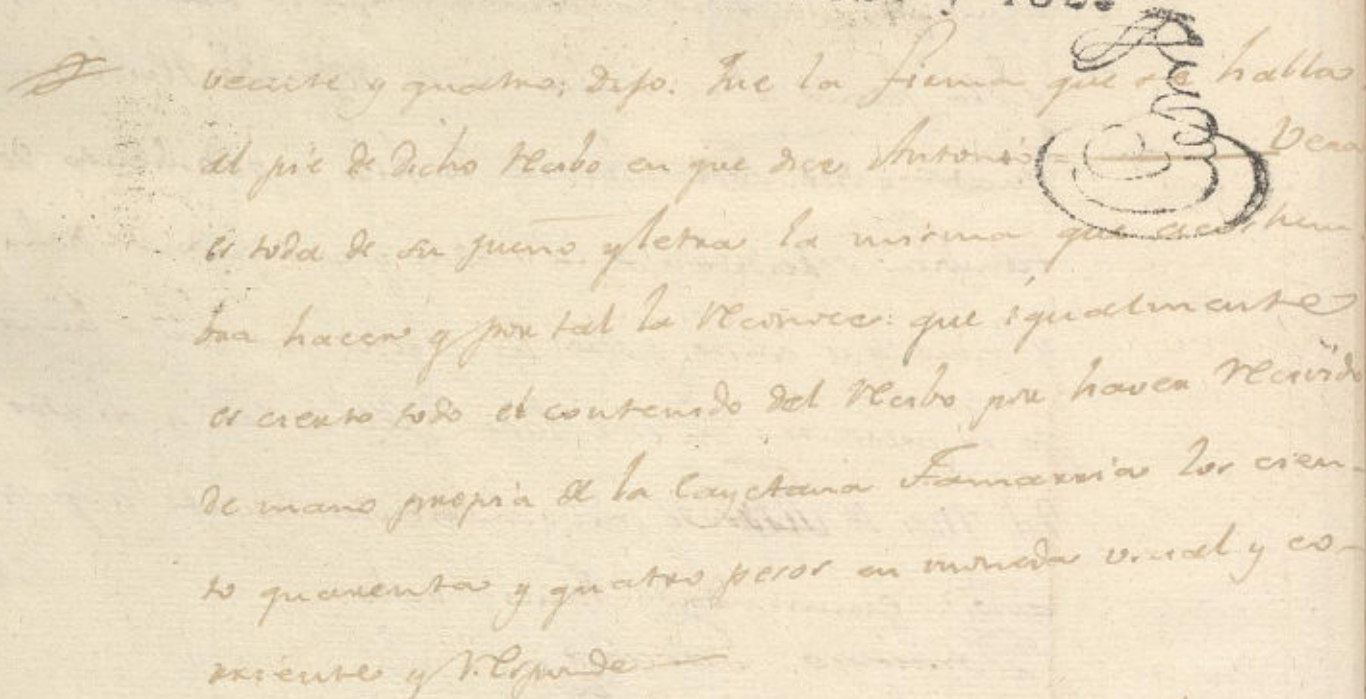 veinte y quatro; dijo: Fue la firma que se halla
al pie de dicho Resibo en que dice Antonio Vera
es toda de su puño y letra la misma que acostum
bra hacer y por tal la reconoce: que igualmente
es cierto todo el contenido del Resibo por haver recivido
de mano propia de la Cayetana Famarria los cien-
to quarenta y quatro pesos en moneda usual y co-
rriente y responde